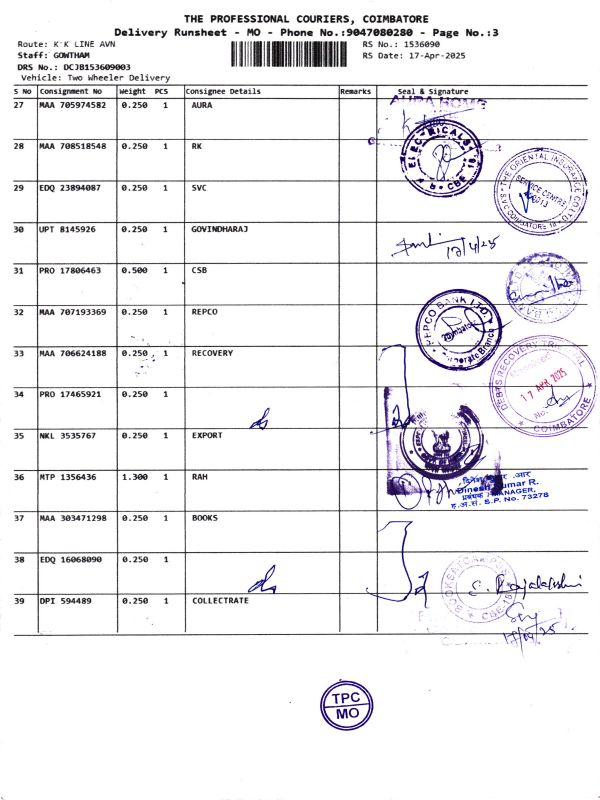 THE PROFESSIONAL COURIERS, COIMBATORE
Delivery Runsheet - MO - Phone No.:9047080280 - Page No.:3
Route: K K LINE AVN
RS No.: 1536090
Staff: GOWTHAM
RS Date: 17-Apr-2025
DRS No.: DCJB153609003
Vehicle: Two Wheeler Delivery
S No Consignment No Weight PCS Consignee Details Remarks Seal & Signature
27 MAA 705974582 0.250 1 AURA
AURA HOME
28 MAA 708518548 0.250 1 RK
ELECTRICALS
CBE-18
29 EDQ 23894087 0.250 1 SVC
THE ORIENTAL INSURANCE CO LTD
SERVICE CENTRE
COIMBATORE 18
30 UPT 8145926 0.250 1 GOVINDHARAJ
17/4/25
31 PRO 17806463 0.500 1 CSB
32 MAA 707193369 0.250 1 REPCO
REPCO BANK LTD.
Coimbatore
33 MAA 706624188 0.250 1 RECOVERY
DEBTS RECOVERY TRIBUNAL
17 APR 2025
No.
COIMBATORE
34 PRO 17465921 0.250 1
35 NKL 3535767 0.250 1 EXPORT
36 MTP 1356436 1.300 1 RAH
दिनेश कुमार .आर
Dinesh Kumar R.
प्रबंधक / MANAGER,
ह.अ.सं. S.P. No. 73278
37 MAA 303471298 0.250 1 BOOKS
38 EDQ 16068090 0.250 1
CBE-18
39 DPI 594489 0.250 1 COLLECTRATE
17/04/25
TPC
MO